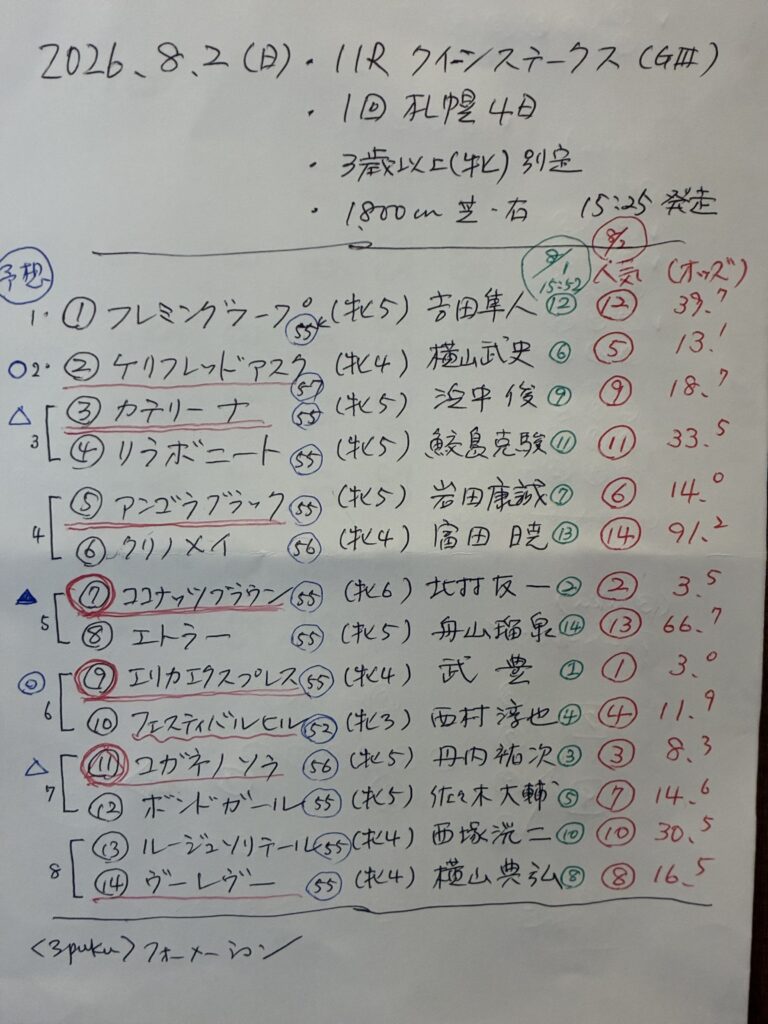 2026.8.2(日)・11R クイーンステークス(GⅢ)
・1回 札幌 4日
・3歳以上(牝)別定
・1,800m 芝・右 15:25 発走
予想 8/1 15:52 8/2 人気 (オッズ)
1・① フレミングフープ 55K (牝5) 吉田隼人 ⑫ ⑫ 39.7
○2・② ケリフレッドアスク 57 (牝4) 横山武史 ⑥ ⑤ 13.1
△ ③ カテリーナ 55 (牝5) 浜中 俊 ⑨ ⑨ 18.7
3 ④ リラボニート 55 (牝5) 鮫島克駿 ⑪ ⑪ 33.5
⑤ アンゴラブラック 55 (牝5) 岩田康誠 ⑦ ⑥ 14.0
4 ⑥ クリノメイ 56 (牝4) 富田 暁 ⑬ ⑭ 91.2
▲ ⑦ ココナッツブラウン 55 (牝6) 北村友一 ② ② 3.5
5 ⑧ エトラー 55 (牝5) 舟山瑠泉 ⑭ ⑬ 66.7
◎ ⑨ エリカエクスプレス 55 (牝4) 武 豊 ① ① 3.0
6 ⑩ フェスティバルヒル 52 (牝3) 西村淳也 ④ ④ 11.9
△ ⑪ コガネノソラ 56 (牝5) 丹内祐次 ③ ③ 8.3
7 ⑫ ボンドガール 55 (牝5) 佐々木大輔 ⑤ ⑦ 14.6
⑬ ルージュソリテール 55 (牝4) 西塚洸二 ⑩ ⑩ 30.5
8 ⑭ ヴーレヴー 55 (牝4) 横山典弘 ⑧ ⑧ 16.5
<3puku>フォーメーション